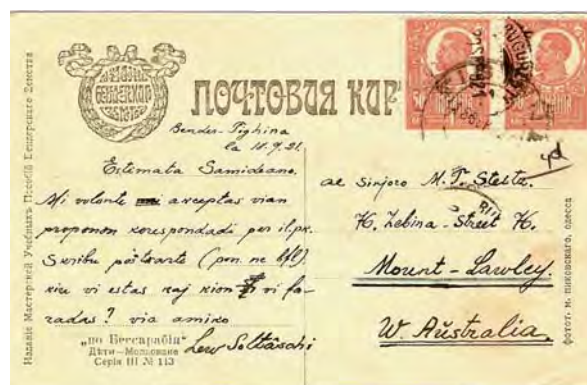 Изданіе Мастерской Учебныхъ Пособій Бендерскаго Земства
ПОЧТОВАЯ КАР
Bender-Tighina
la 10.9.21.
Estimata Samideano.
Mi volonte akceptas vian
proponon korespondadi per il. pk.
Skribu poŝtkarte (
kiu vi estas kaj kion vi fa-
radas? via amiko
Lew Soltâschi
„по Бессарабіи"
Дѣти—Молдоване
Серія III № 113
al Sinjoro M. T.
H. Zebina-Street H.
Mount-Lawley.
W. Aŭstralia.
фотот. м. пиковскаго, одесса